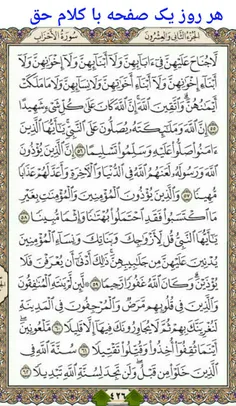 هر روز یک صفحه با کلام حق
الجزء الثاني والعشرون سورة الأحزاب
لَّا جُنَاحَ عَلَيْهِنَّ فِي ءَابَآئِهِنَّ وَلَآ أَبْنَآئِهِنَّ وَلَآ إِخْوَٰنِهِنَّ وَلَآ
أَبْنَآءِ إِخْوَٰنِهِنَّ وَلَآ أَبْنَآءِ أَخَوَٰتِهِنَّ وَلَا نِسَآئِهِنَّ وَلَا مَا مَلَكَتْ
أَيْمَٰنُهُنَّ وَٱتَّقِينَ ٱللَّهَ إِنَّ ٱللَّهَ كَانَ عَلَىٰ كُلِّ شَيْءٍ شَهِيدًا
٥٥ إِنَّ ٱللَّهَ وَمَلَٰٓئِكَتَهُۥ يُصَلُّونَ عَلَى ٱلنَّبِيِّ يَٰٓأَيُّهَا ٱلَّذِينَ
ءَامَنُوا۟ صَلُّوا۟ عَلَيْهِ وَسَلِّمُوا۟ تَسْلِيمًا ٥٦ إِنَّ ٱلَّذِينَ يُؤْذُونَ
ٱللَّهَ وَرَسُولَهُۥ لَعَنَهُمُ ٱللَّهُ فِي ٱلدُّنْيَا وَٱلْءَاخِرَةِ وَأَعَدَّ لَهُمْ عَذَابًا
مُّهِينًا ٥٧ وَٱلَّذِينَ يُؤْذُونَ ٱلْمُؤْمِنِينَ وَٱلْمُؤْمِنَٰتِ بِغَيْرِ
مَا ٱكْتَسَبُوا۟ فَقَدِ ٱحْتَمَلُوا۟ بُهْتَٰنًا وَإِثْمًا مُّبِينًا ٥٨
يَٰٓأَيُّهَا ٱلنَّبِيُّ قُل لِّأَزْوَٰجِكَ وَبَنَاتِكَ وَنِسَآءِ ٱلْمُؤْمِنِينَ
يُدْنِينَ عَلَيْهِنَّ مِن جَلَٰبِيبِهِنَّ ذَٰلِكَ أَدْنَىٰٓ أَن يُعْرَفْنَ فَلَا
يُؤْذَيْنَ وَكَانَ ٱللَّهُ غَفُورًا رَّحِيمًا ٥٩ لَّئِن لَّمْ يَنتَهِ ٱلْمُنَٰفِقُونَ
وَٱلَّذِينَ فِي قُلُوبِهِم مَّرَضٌ وَٱلْمُرْجِفُونَ فِي ٱلْمَدِينَةِ
لَنُغْرِيَنَّكَ بِهِمْ ثُمَّ لَا يُجَاوِرُونَكَ فِيهَآ إِلَّا قَلِيلًا ٦٠ مَّلْعُونِينَ
أَيْنَمَا ثُقِفُوٓا۟ أُخِذُوا۟ وَقُتِّلُوا۟ تَقْتِيلًا ٦١ سُنَّةَ ٱللَّهِ فِي
ٱلَّذِينَ خَلَوْا۟ مِن قَبْلُ وَلَن تَجِدَ لِسُنَّةِ ٱللَّهِ تَبْدِيلًا ٦٢
٤٢٦